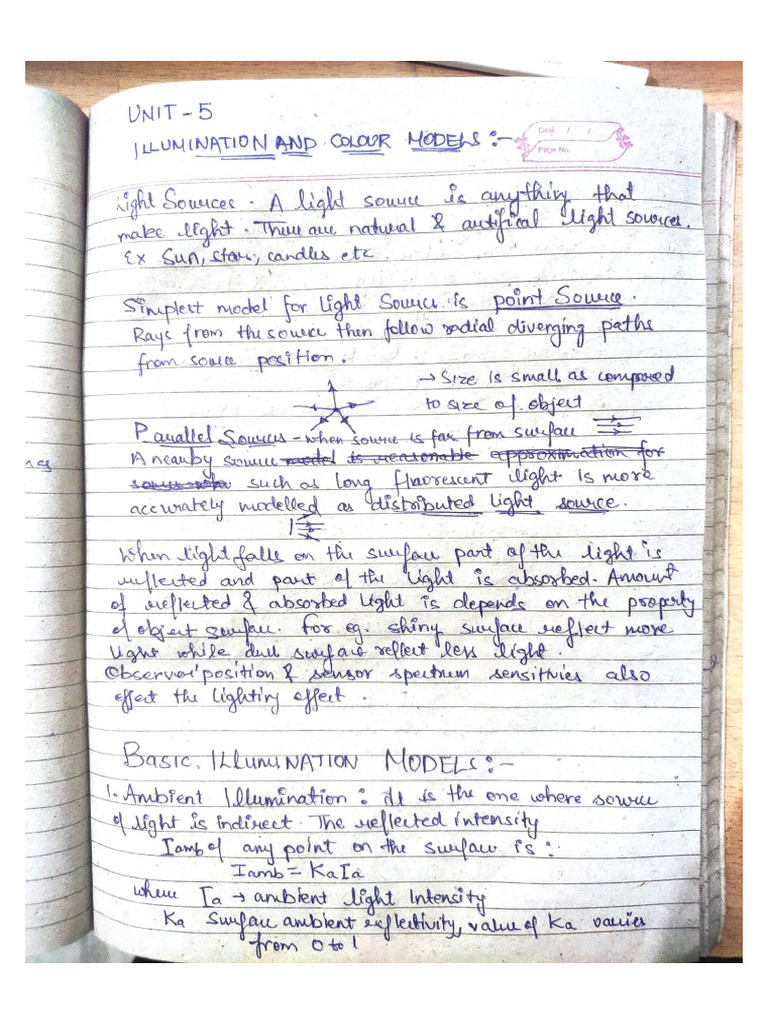 UNIT - 5
ILLUMINATION AND COLOUR MODELS :-
Date / /
Page No.
Light Sources - A light source is anything that
make light. There are natural & artifical light sources.
Ex Sun, stars, candles etc.
Simplest model for light source is point Source.
Rays from the source then follow radial diverging paths
from source position.
→ Size is small as compared
to size of object
Parallel Sources - when source is far from surface
A nearby source model is reasonable approximation for
such as long fluorescent light is more
accurately modelled as distributed light source.
When light falls on the surface part of the light is
reflected and part of the light is absorbed. Amount
of reflected & absorbed light is depends on the property
of object surface. For eg. shiny surface reflect more
light while dull surface reflect less light.
Observer position & sensor spectrum sensitivies also
effect the lighting effect.
BASIC ILLUMINATION MODELS :-
1. Ambient Illumination : It is the one where source
of light is indirect. The reflected intensity
Iamb of any point on the surface is :
Iamb = KaIa
where Ia → ambient light intensity
Ka surface ambient reflectivity, value of Ka varies
from 0 to 1